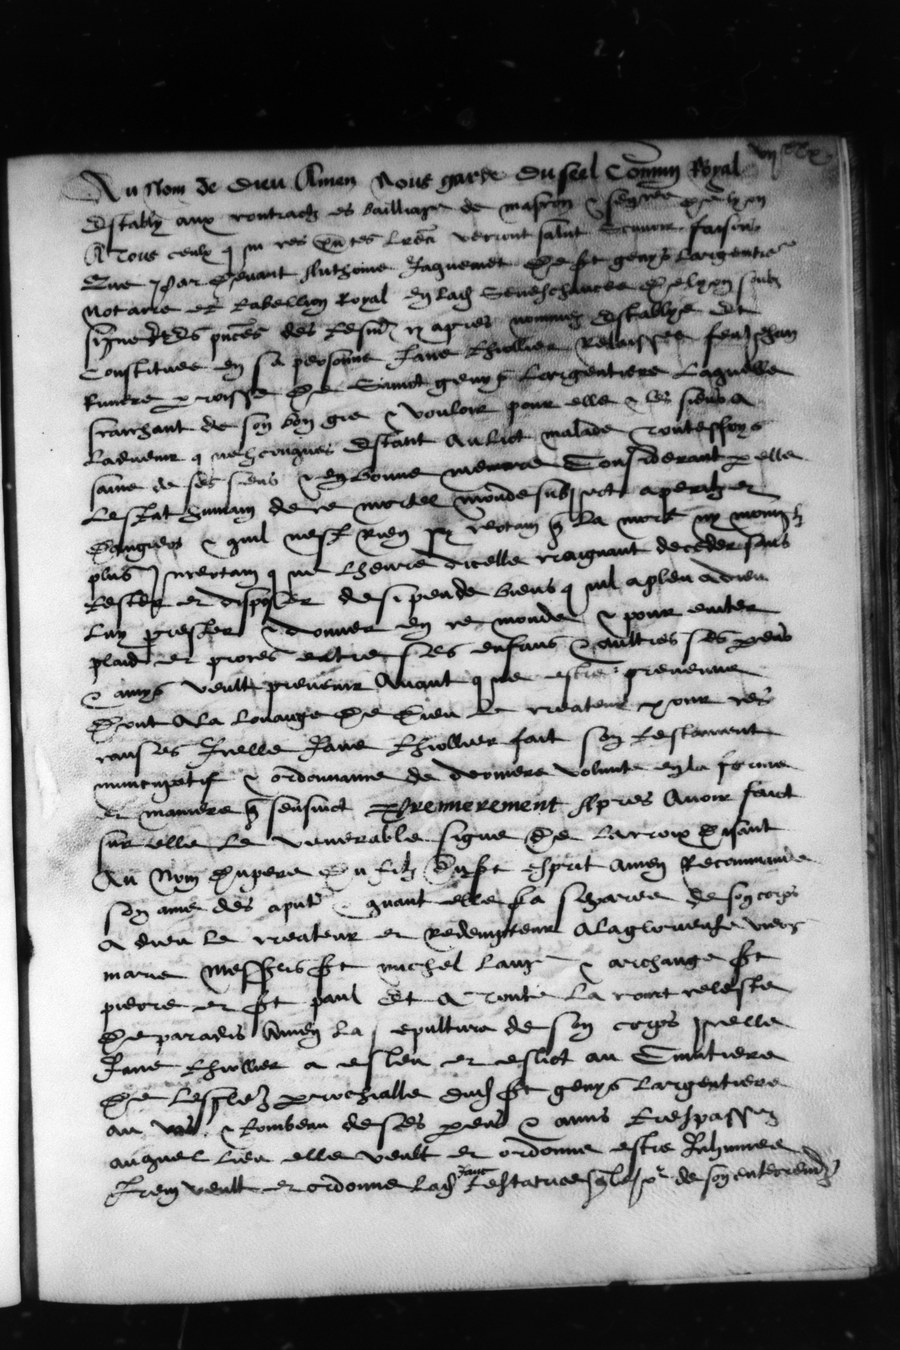 Au Nom de Dieu Amen Nous garde du seel Commun Royal
Estably aux contractz es bailliage de mascon &
A Tous ceulx q ces verront salut faisons
Que par devant Anthoine Jaquemet de st genys Largentiere
Notaire et Tabellion Royal en lad Seneschaucee de lyon soubz
signe des tesm cy apres nommez Establye et
Constituee en sa personne Jane Thiollier Relaissee feu Jehan
parroisse de Sainct genys Largentiere Laquelle
saichant de son bon gre & vouloir pour elle & les siens a
Ladvenir q uelzconques Estant au lict malade Toutesfoys
saine de ses sens & en bonne memoire Considerant p elle
Lestat humain de ce mortel monde subject a perilz et
dangiers & quil nest Rien si certain q la mort ny moingz
plus Incertain q ne Lheure dicelle craignant decedder sans
Tester et disposer de si peu de biens q uil a pleu a dieu
Luy prester & donner en ce monde & pour eviter
plaid et proces entre ses enfans & aultres ses parens
& amys veult prevenir Avant q ue estre prevenue
Dont A la Louange De Dieu Le createur pour ces
causes Icelle Jane Thiollier fait son Testament
nuncupatif & ordonnance de derniere volunte en la forme
et maniere q sensuict Premierement Apres Avoir faict
sur elle Le venerable signe De La croix Disant
Au Nom Du pere Du filz Du st esprit Amen Recommande
son ame des a & quant elle sera separee de son corps
A dieu Le createur et Redempteur A la glorieuse vierge
marie Messrs st michel Lange & archange st
pierre et st paul Et A Toute La court celeste
De paradis Amen La sepulture de son corps Icelle
Jane Thiollier a esleu et eslict au Cimitiere
De Lesglize parrochialle dud st genys Largentiere
au vas & Tombeau de ses parens & amis Trespassez
auquel Lieu elle veult et ordonne estre Inhumee
Item veult et ordonne lad Jane Testatrice q le jour de son enterrement